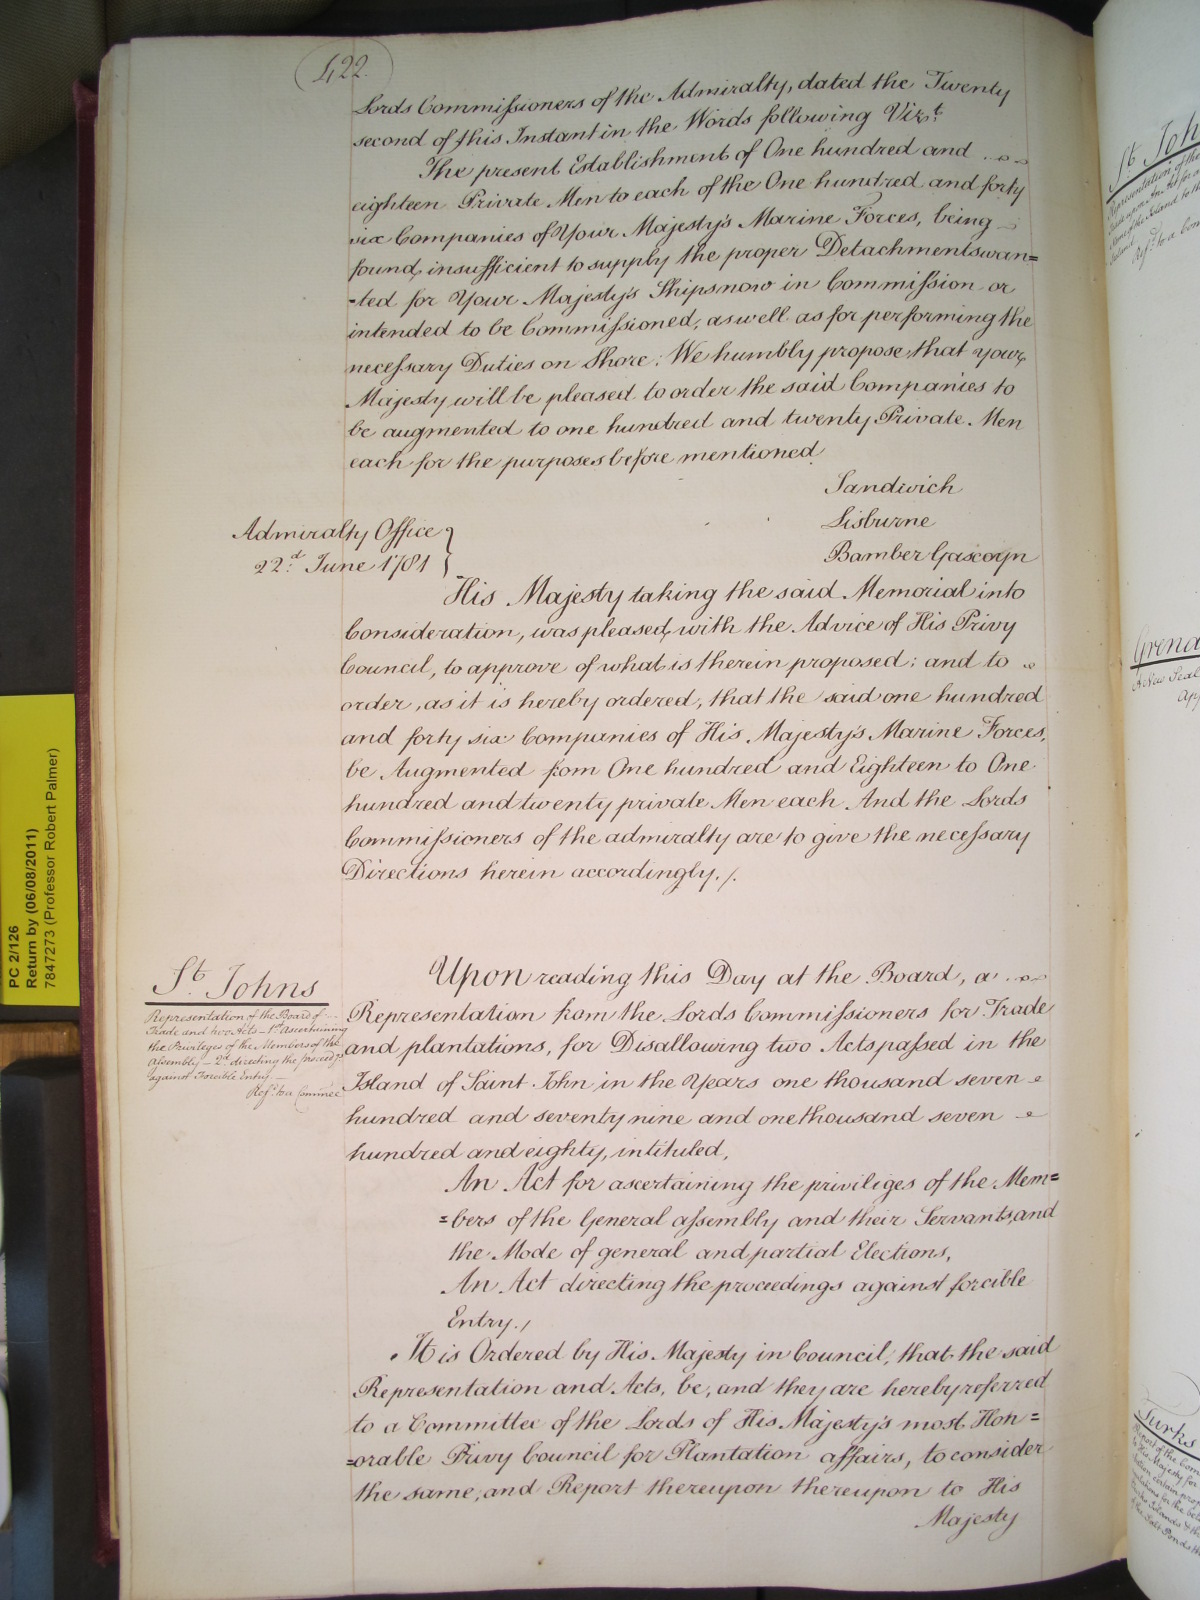 422.
Lords Commissioners of the Admiralty, dated the Twenty
second of this Instant in the Words following Vizt
The present Establishment of One hundred and
eighteen Private Men to each of the One hundred and forty
six Companies of Your Majesty's Marine Forces, being
found insufficient to supply the proper Detachments wan=
=ted for Your Majesty's Ships now in Commission or
intended to be Commissioned, as well as for performing the
necessary Duties on Shore; We humbly propose that your
Majesty will be pleased to order the said Companies to
be augmented to one hundred and twenty Private Men
each for the purposes before mentioned
Sandwich
Lisburne
Bamber Gascoyn
Admiralty Office
22d June 1781
His Majesty taking the said Memorial into
Consideration, was pleased, with the Advice of His Privy
Council, to approve of what is therein proposed; and to
order, as it is hereby ordered, that the said one hundred
and forty six Companies of His Majesty's Marine Forces,
be Augmented from One hundred and Eighteen to One
hundred and twenty private Men each And the Lords
Commissioners of the admiralty are to give the necessary
Directions herein accordingly. /.
St. Johns
Representation of the Board of
Trade and two Acts – 1st ascertaining
the Privileges of the Members of the
Assembly – 2d directing the proceedgs
against Forcible Entry –
Refd. to a Commee
Upon reading this Day at the Board, a
Representation from the Lords Commissioners for Trade
and plantations, for Disallowing two Acts passed in the
Island of Saint John in the Years one thousand seven
hundred and seventy nine and one thousand seven
hundred and eighty, intituled,
An Act for ascertaining the priviliges of the Mem=
=bers of the General assembly and their Servants, and
the Mode of general and partial Elections,
An Act directing the proceedings against forcible
Entry./
It is Ordered by His Majesty in Council, that the said
Representation and Acts, be, and they are hereby referred
to a Committee of the Lords of His Majesty's most Hon=
=orable Privy Council for Plantation affairs, to consider
the same, and Report thereupon thereupon to His
Majesty
PC 2/126
Return by (06/08/2011)
7847273 (Professor Robert Palmer)
St. Joh
Grena
A New Seal
Turks